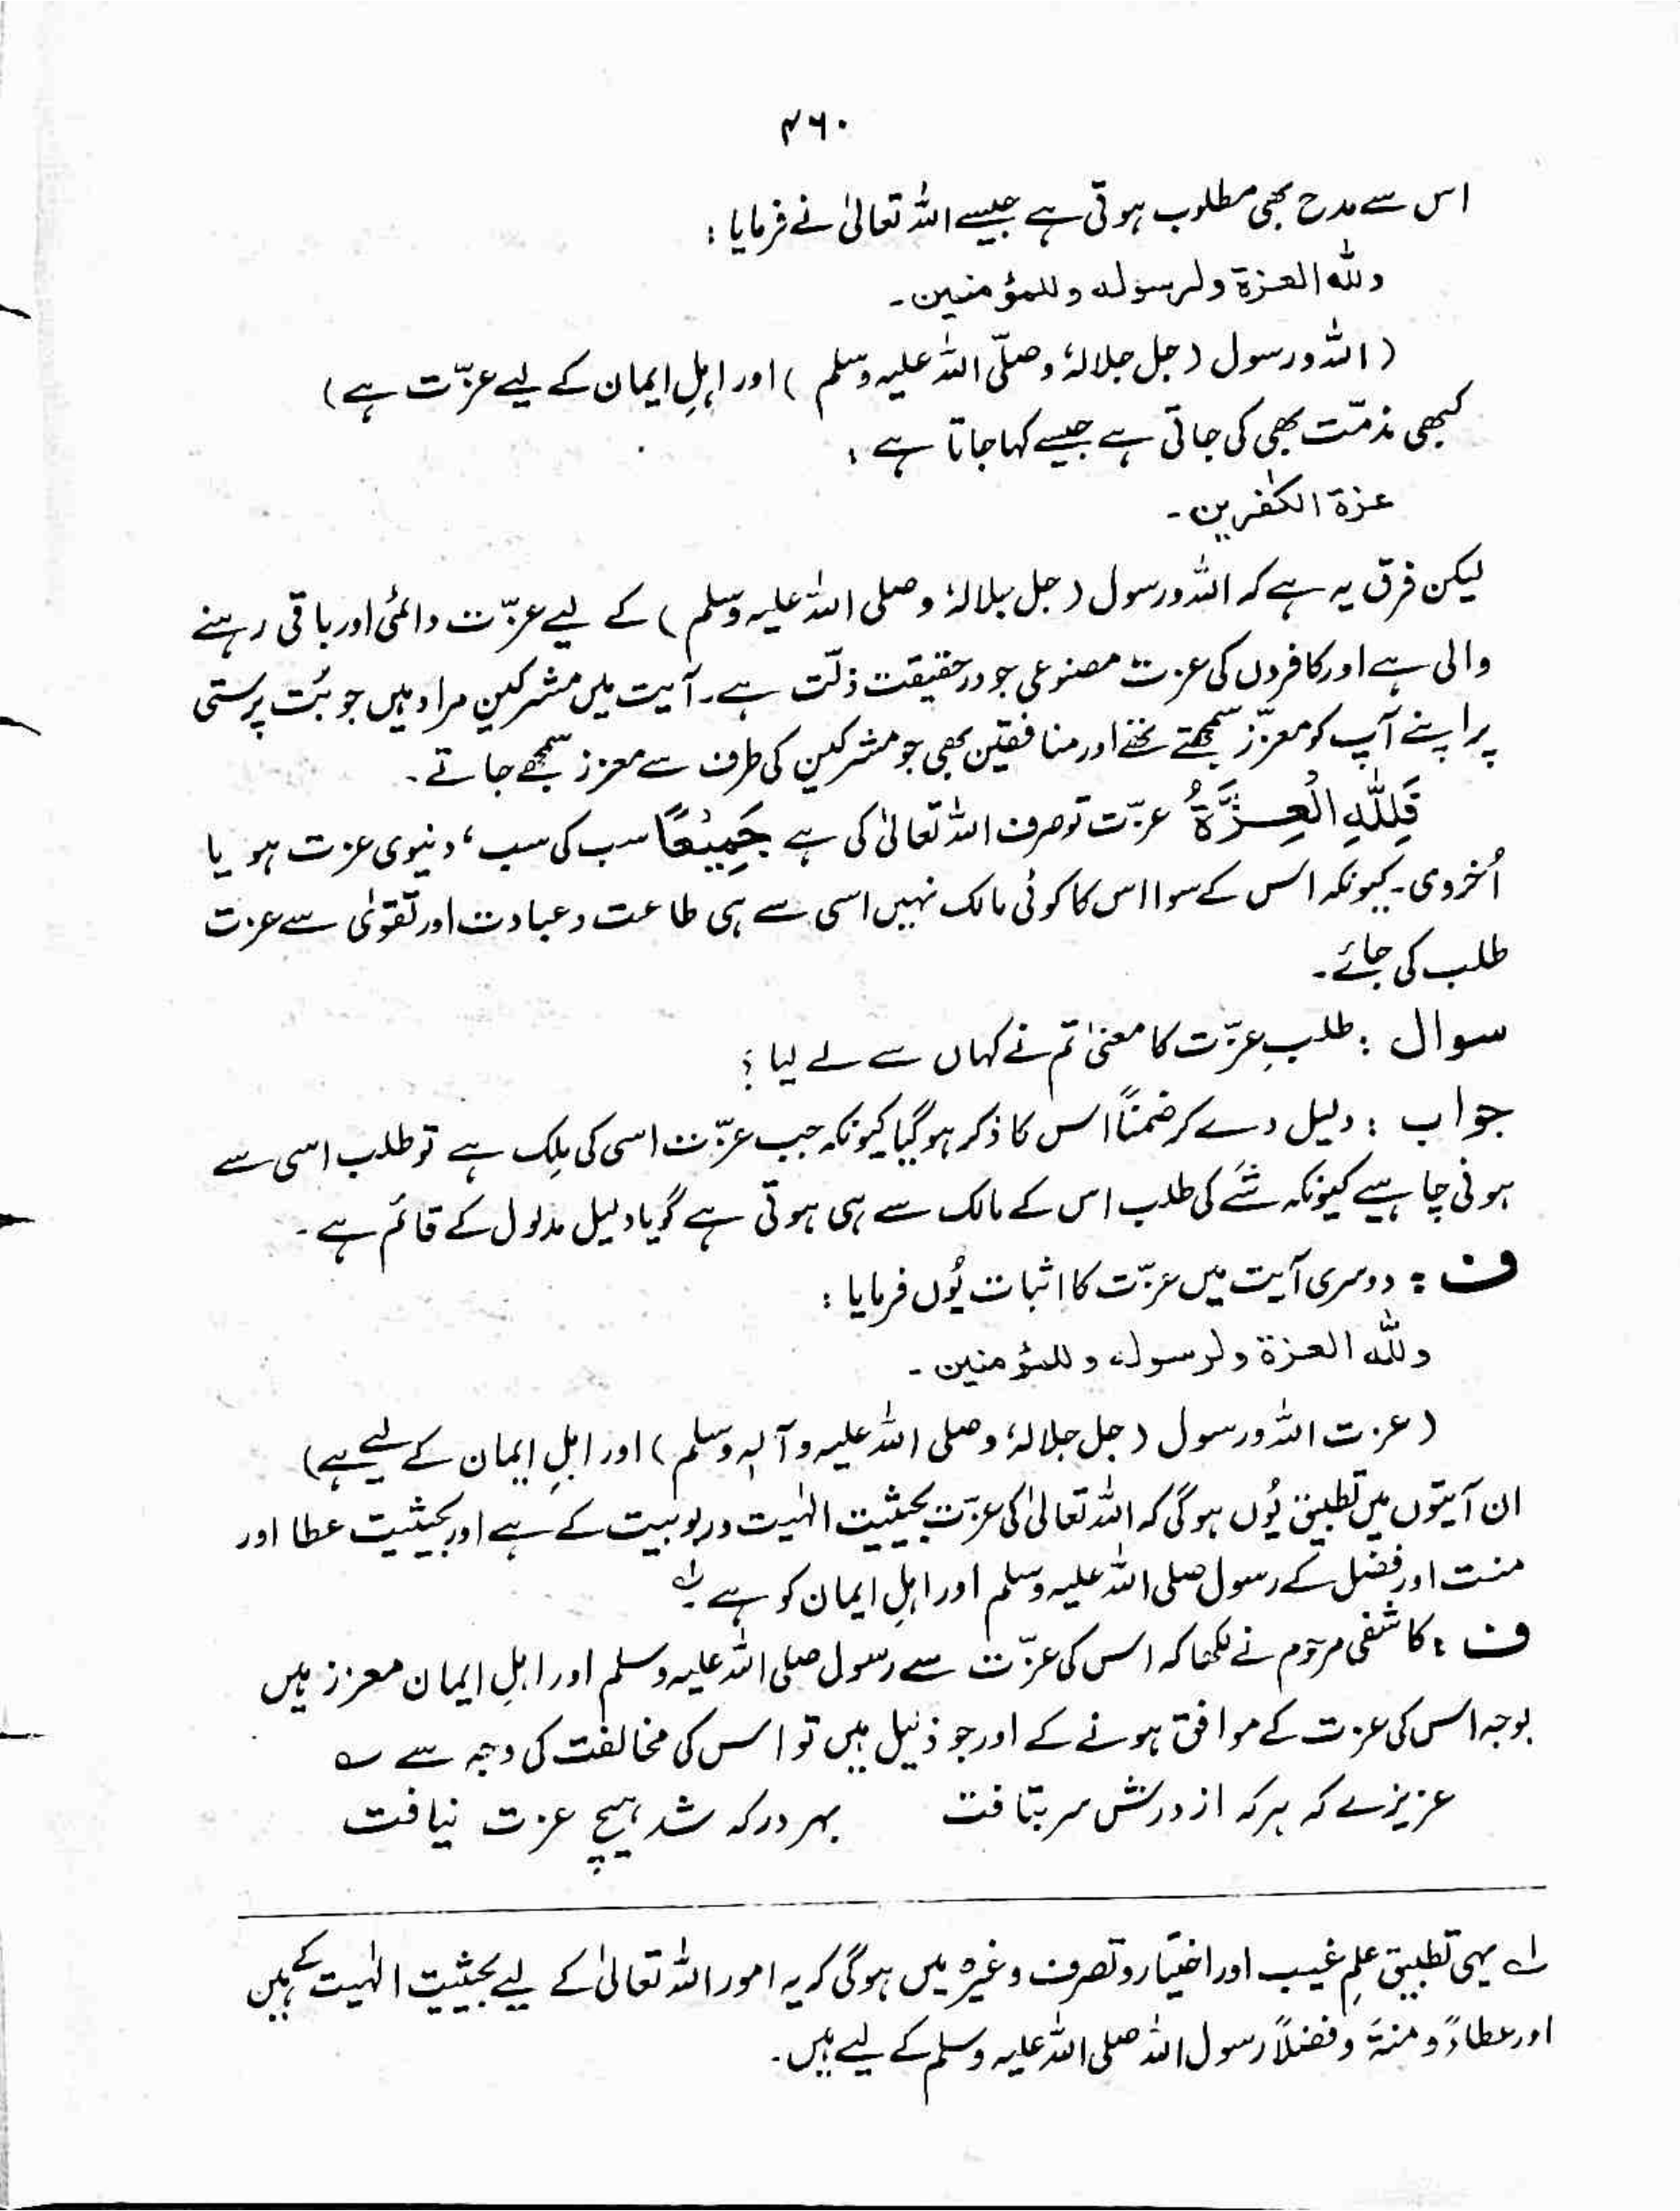 ۴۶۰
اس سے مدح بھی مطلوب ہوتی ہے جیسے اللہ تعالیٰ نے فرمایا :
وللہ العزۃ ولرسولہ وللمؤمنین۔
(اللہ ورسول (جل جلالہٗ وصلّی اللہ علیہ وسلم) اور اہلِ ایمان کے لیے عزّت ہے)
کبھی مذمّت بھی کی جاتی ہے جیسے کہا جاتا ہے :
عزۃ الکٰفرین۔
لیکن فرق یہ ہے کہ اللہ ورسول (جل جلالہٗ وصلی اللہ علیہ وسلم) کے لیے عزّت دائمی اور باقی رہنے
والی ہے اور کافروں کی عزت مصنوعی جو درحقیقت ذلّت ہے۔ آیت میں مشرکین مراد ہیں جو بُت پرستی
پر اپنے آپ کو معزّز سمجھتے تھے اور منافقین بھی جو مشرکین کی طرف سے معزز سمجھے جاتے۔
فَلِلّٰهِ الْعِزَّۃُ عزّت تو صرف اللہ تعالیٰ کی ہے جَمِیْعًا سب کی سب، دنیوی عزت ہو یا
اُخروی۔ کیونکہ اس کے سوا اس کا کوئی مالک نہیں اسی سے ہی طاعت وعبادت اور تقویٰ سے عزت
طلب کی جائے۔
سوال : طلبِ عزّت کا معنیٰ تم نے کہاں سے لے لیا ؟
جواب : دلیل دے کر ضمناً اس کا ذکر ہوگیا کیونکہ جب عزّت اسی کی مِلک ہے تو طلب اسی سے
ہونی چاہیے کیونکہ شَے کی طلب اس کے مالک سے ہی ہوتی ہے گویا دلیل مدلول کے قائم ہے۔
ف : دوسری آیت میں عزّت کا اثبات یُوں فرمایا :
وللہ العزۃ ولرسولہ وللمؤمنین۔
(عزت اللہ ورسول (جل جلالہٗ وصلی اللہ علیہ وآلہٖ وسلم) اور اہلِ ایمان کے لیے ہے)
ان آیتوں میں تطبیق یُوں ہوگی کہ اللہ تعالیٰ کی عزّت بحیثیت الٰہیت وربوبیت کے ہے اور بحیثیت عطا اور
منت اور فضل کے رسول صلی اللہ علیہ وسلم اور اہلِ ایمان کو ہے۔ لہ
ف : کاشفی مرحوم نے لکھا کہ اس کی عزّت سے رسول صلی اللہ علیہ وسلم اور اہلِ ایمان معزز ہیں
بوجہ اس کی عزت کے موافق ہونے کے اور جو ذلیل ہیں تو اس کی مخالفت کی وجہ سے ؎
عزیزے کہ ہرکہ از درش سر بتافت بہر در کہ شد ہیچ عزت نیافت
لہ یہی تطبیق علمِ غیب اور اختیار وتصرف وغیرہ میں ہوگی کہ یہ امور اللہ تعالیٰ کے لیے بحیثیت الٰہیت کے ہیں
اور عطاءً ومنۃً وفضلاً رسول اللہ صلی اللہ علیہ وسلم کے لیے ہیں۔